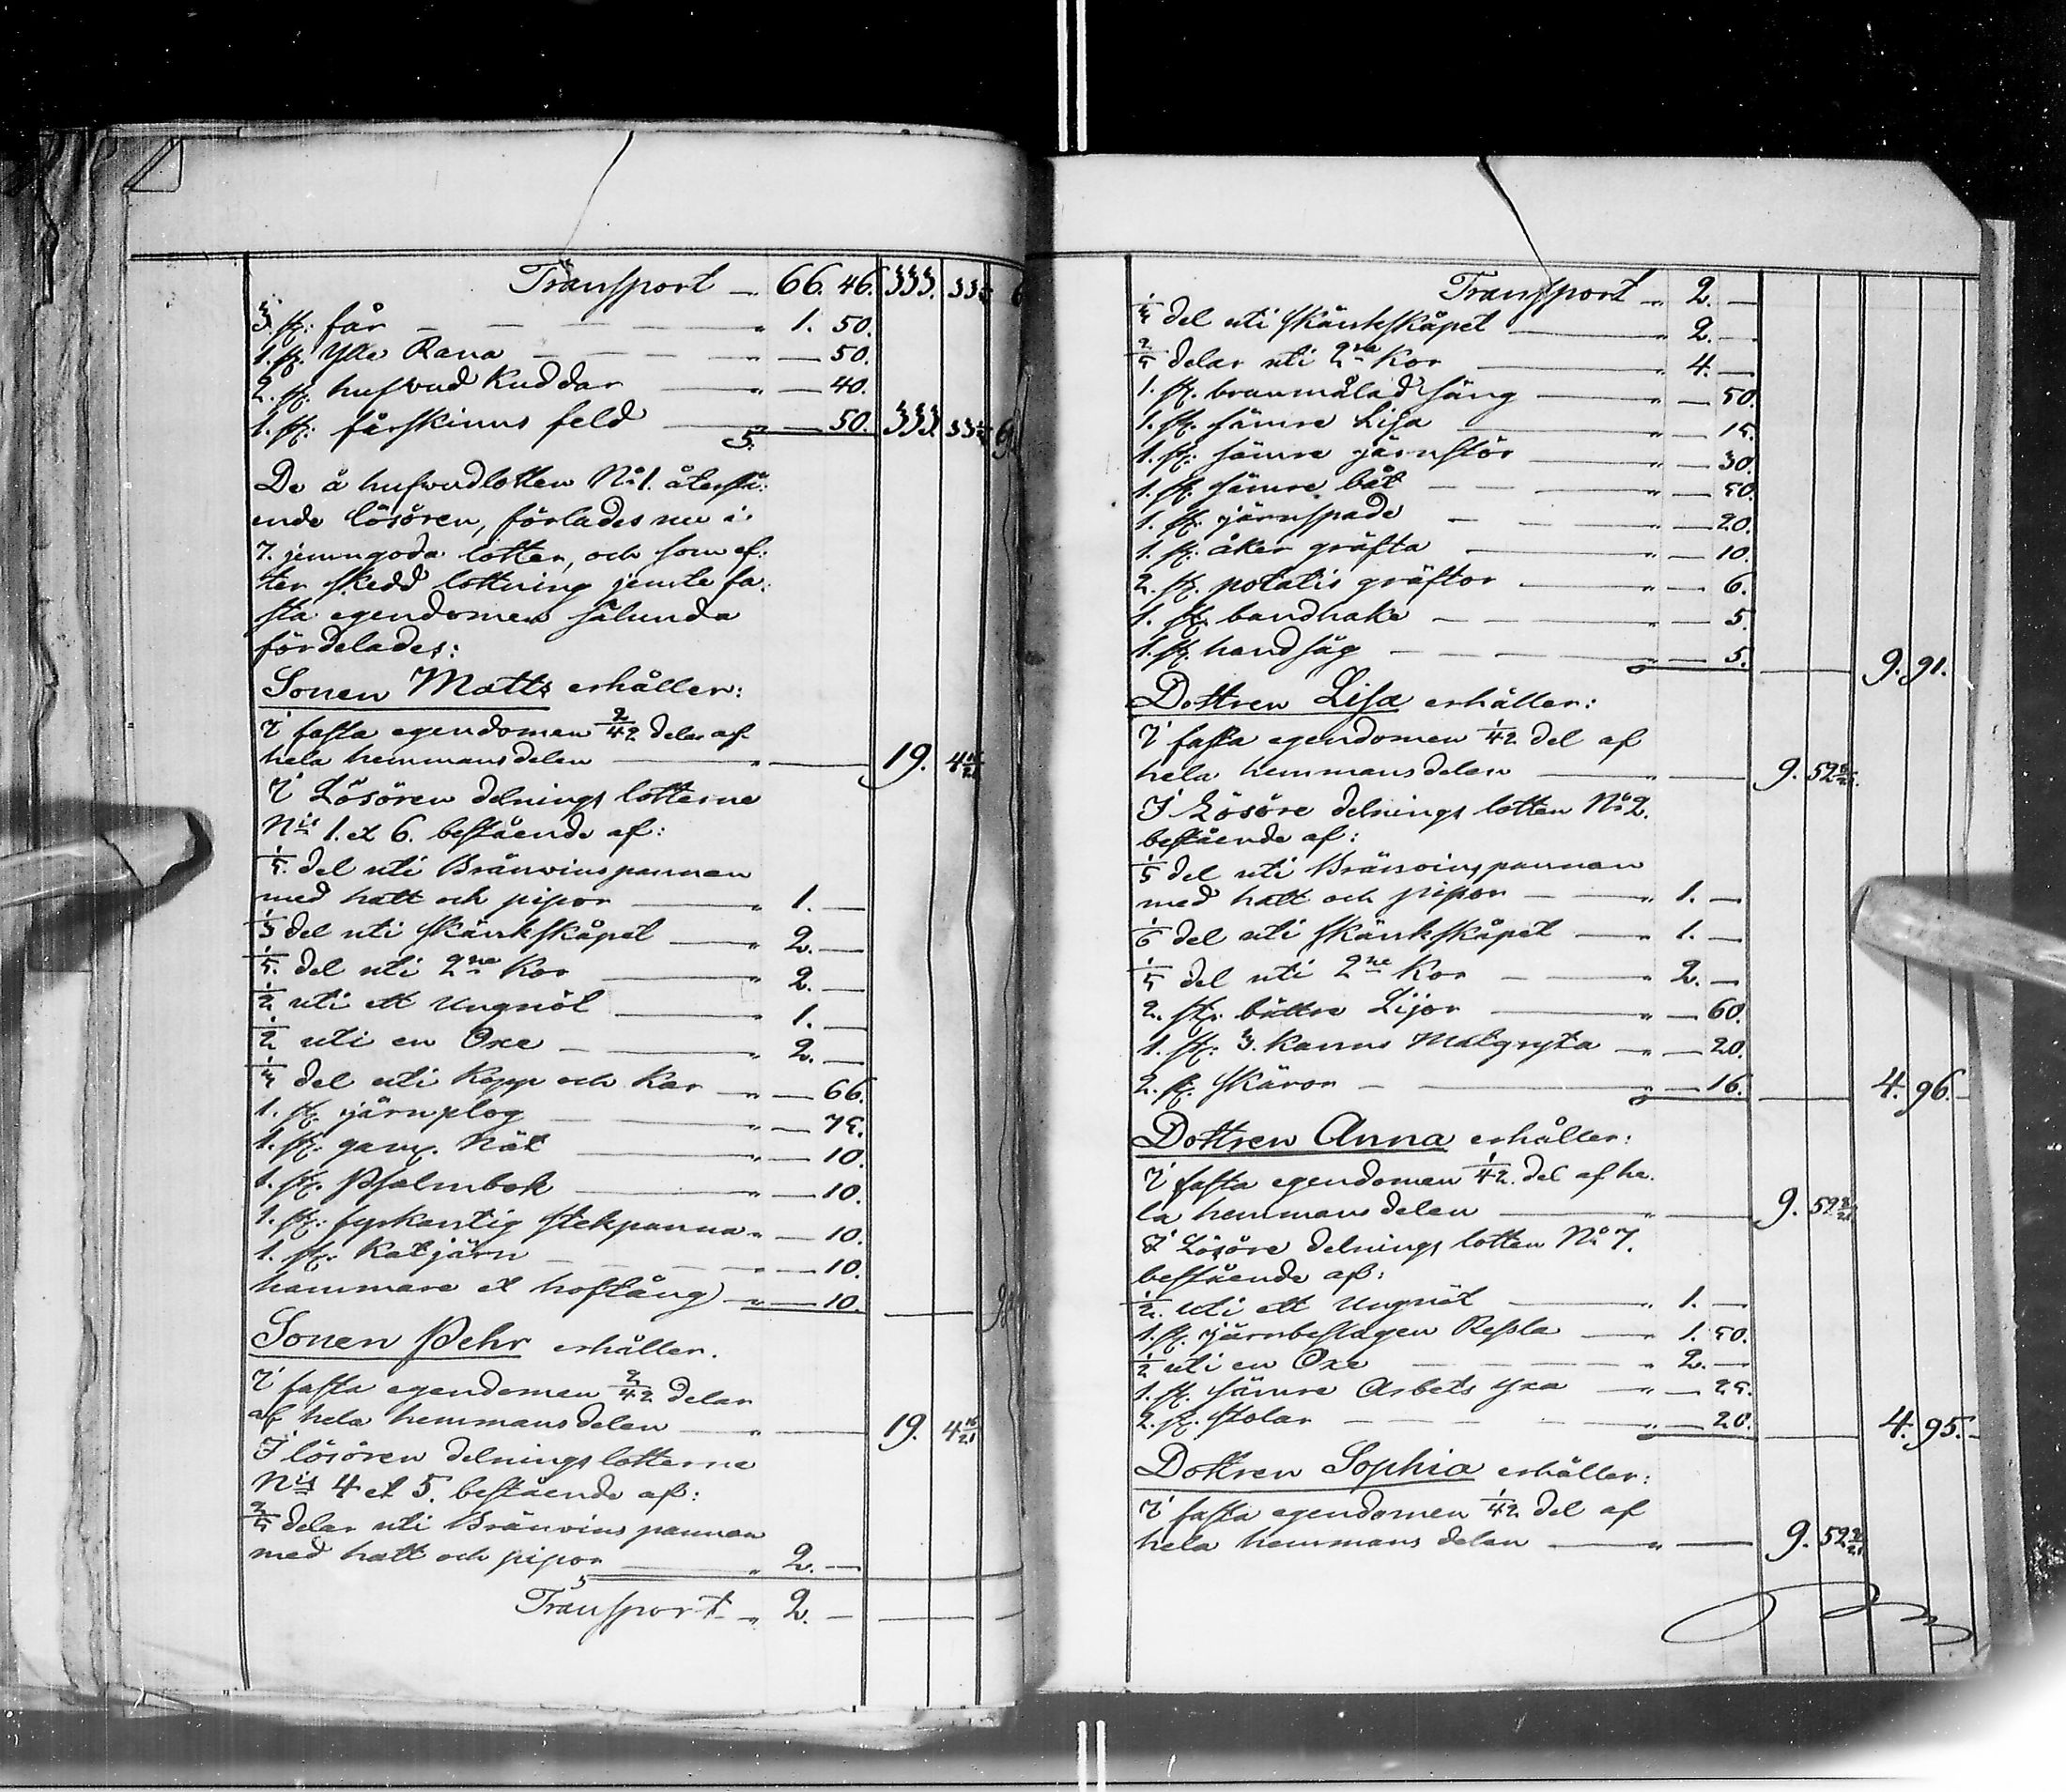 Transport „ 66. 46. 333. 33⅓
3. st: får „ 1. 50.
1. st. Ylle Rana „ — 50.
2. st. hufvud Kuddar „ — 40.
1. st: fårskinns feld „ — 50. 333. 33⅓
De å hufvudlotten No 1. återstå:
ende lösören, förlades nu i
7. jemngoda lotter, och som ef:
ter skedd lottning jemte fa:
sta egendomen sålunda
fördelades:
Sonen Matts erhåller:
I fasta egendomen 2/42 delar af
hela hemmansdelen „ — 19. 4 16/21
I Lösören delnings lotterne
Nis 1. et 6. bestående af:
1/5. del uti Bränvins pannan
med hatt och pipor „ 1. —
1/3 del uti skänkskåpet „ 2. —
1/5. del uti 2ne Kor „ 2. —
1/2 uti ett Ungnöt „ 1. —
1/2 uti en Oxe „ 2. —
del uti Kopp och Kar „ — 66.
1. st. järnplog „ — 75.
1. st. gam. Nät „ — 10.
1. st. Psalmbok „ — 10.
1. st: fyrkantig stekpanna „ — 10.
1. st: Katjärn „ — 10.
hammare et hoftång „ — 10.
Sonen Pehr erhåller.
I fasta egendomen 2/42 delar
af hela hemmansdelen „ — 19. 4 16/21
I lösören delnings lotterne
Nis 4 et 5. bestående af:
2/5 delar uti Bränvins pannan
med hatt och pipor „ 2. —
Transport „ 2. —
Transport „ 2. —
del uti skänkskåpet „ 2. —
2/5 delar uti 2ne Kor „ 4. —
1. st. brunmålad säng „ — 50.
1. st. sämre Lija „ — 15.
1. st: sämre järnstör „ — 30.
1. st. sämre båt „ — 50.
1. st. järnspade „ — 20.
1. st: åker gräfta „ — 10.
2. st. potatis gräftor „ — 6.
1. st. bandhake „ — 5.
1. st. handsåg „ — 5. 9. 91.
Dottren Lisa erhåller:
I fasta egendomen 1/42 del af
hela hemmansdelen „ — 9. 52 8/21
I Lösöre delnings lotten No 2.
bestående af:
1/5 del uti Bränvinspannan
med hatt och pipor „ 1. —
1/6 del uti skänkskåpet „ 1. —
1/5 del uti 2ne Kor „ 2. —
2. st. bättre Lijor „ — 60.
1. st: 3. kanns Matgryta „ — 20.
2. st: skäror „ — 16. 4. 96.
Dottren Anna erhåller:
I fasta egendomen 1/42. del af he.
la hemmansdelen „ — 9. 52 8/21
I Lösöre delnings lotten No 7.
bestående af:
1/2. uti ett Ungnöt „ 1. —
1. st. järnbeslagen Ressla „ 1. 50.
1/2 uti en Oxe „ 2. —
1. st. sämre Arbets yxa „ — 25.
2. st. stolar „ — 20. 4. 95.
Dottren Sophia erhåller:
I fasta egendomen 1/42 del af
hela hemmans delen „ — 9. 52 8/21